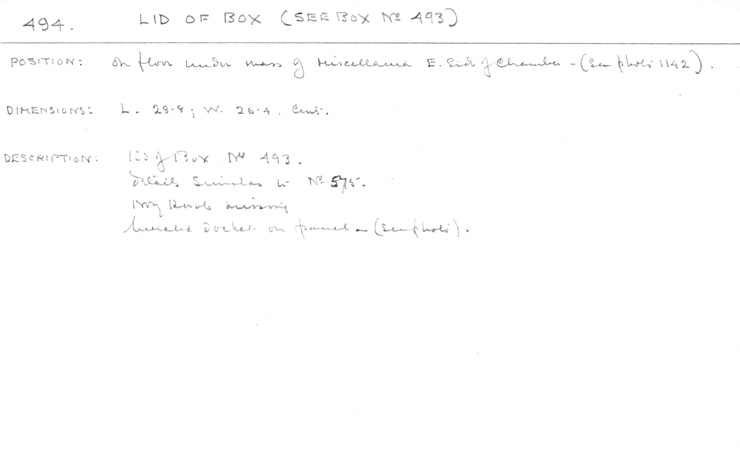 494. LID OF BOX (SEE BOX Nº 493)
POSITION: On floor under mass of miscellanea E. Side of Chamber - (See photo 1142).
DIMENSIONS: L. 28.8; W. 26.4. Cent.
DESCRIPTION: Lid of Box Nº 493.
Details similar to Nº 575.
Ivory Knob missing
hieratic docket on panel - (see photo).